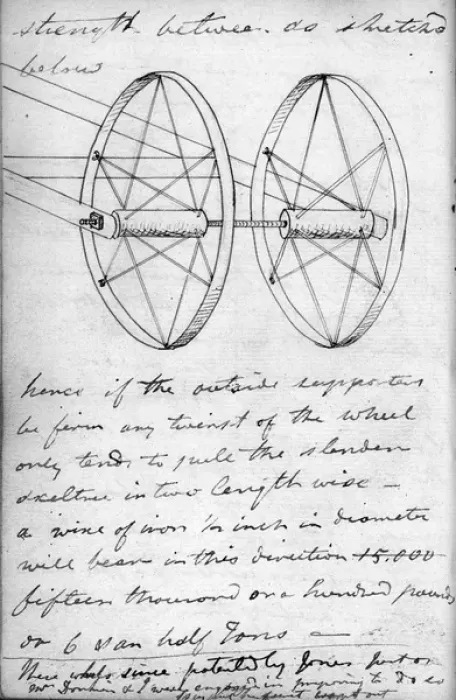 strength between as sketchd
below
hence if the outside supporters
be firm any twist of the wheel
only tends to pull the slender
axeltree in two lengthwise –
a wire of iron ½ inch in diameter
will bear in this direction 15.000
fifteen thousand one hundred pounds
or 6 & an half Tons –
These wheels since patented by Jones just as
Mr Donkin & I were engaged in preparing to do so